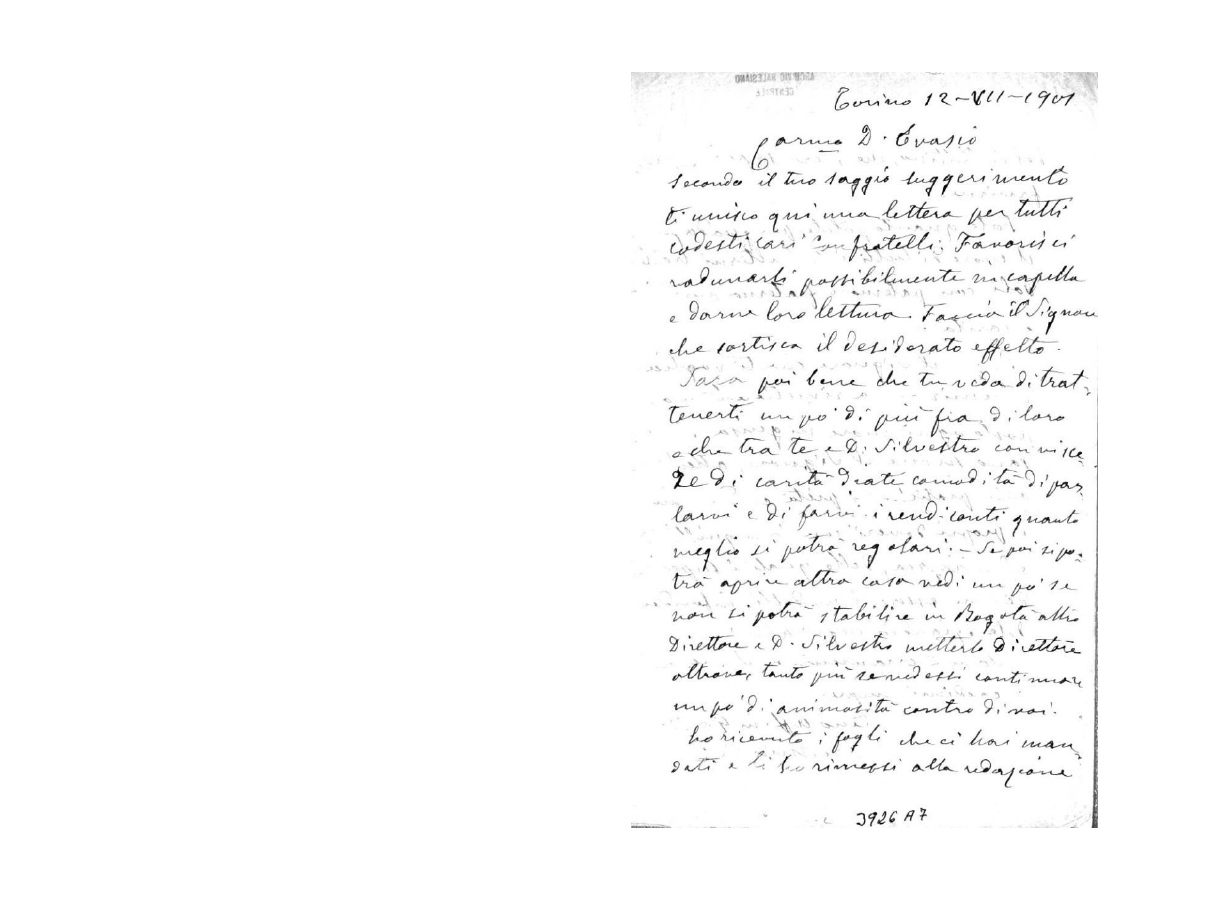 ARCHIVIO SALESIANO
CENTRALE
Torino 12-VII-1901
Carmo D. Evasio
Secondo il tuo saggio suggerimento
ti unisco qui una lettera per tutti
codesti cari Confratelli. Favorisci
radunarli possibilmente in capella
e darne loro lettura. Faccia il Signore
che sortisca il desiderato effetto.
Sarà poi bene che tu veda di trat-
tenerti un po' di più fra di loro
e che tra te e D. Silvestro con visce-
re di carità diate comodità di par-
larvi e di farvi i rendiconti quanto
meglio si potrà regolari. - Se poi si po-
trà aprire altra casa vedi un po' se
non si potrà stabilire in Bogotà altro
Direttore e D. Silvestro metterlo Direttore
altrove, tanto più se vedessi continuare
un po' di animosità contro di voi.
Ho ricevuto i fogli che ci hai man-
dati e li ho rimessi alla redazione
3926 A7